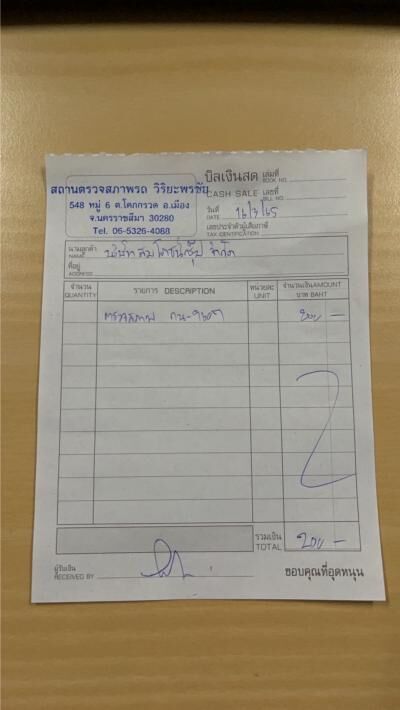 บิลเงินสด
CASH SALE
เล่มที่
BOOK NO.
เลขที่
BILL NO.
สถานตรวจสภาพรถ วิริยะพรชัย
548 หมู่ 6 ต.โคกกรวด อ.เมือง
จ.นครราชสีมา 30280
Tel. 06-5326-4088
วันที่
DATE 16/3/65
เลขประจำตัวผู้เสียภาษี
TAX IDENTIFICATION
นามลูกค้า
NAME บริษัท จำกัด
ที่อยู่
ADDRESS
จำนวน รายการ DESCRIPTION หน่วยละ จำนวนเงิน AMOUNT
QUANTITY UNIT บาท BAHT
ตรวจสภาพ 200 —
รวมเงิน
TOTAL 200 —
ผู้รับเงิน
RECEIVED BY
ขอบคุณที่อุดหนุน